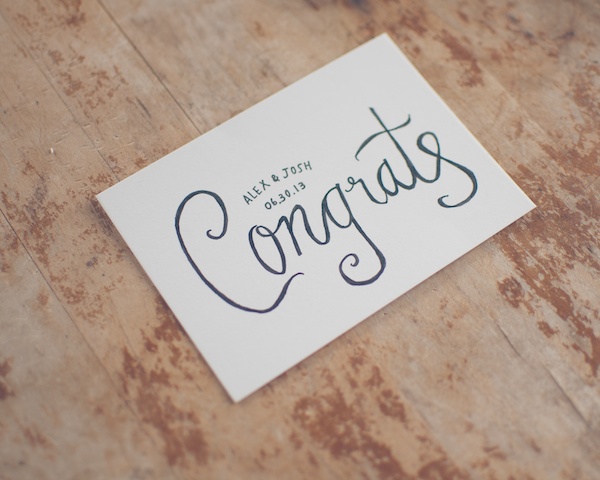 ALEX & JOSH
06.30.13
Congrats